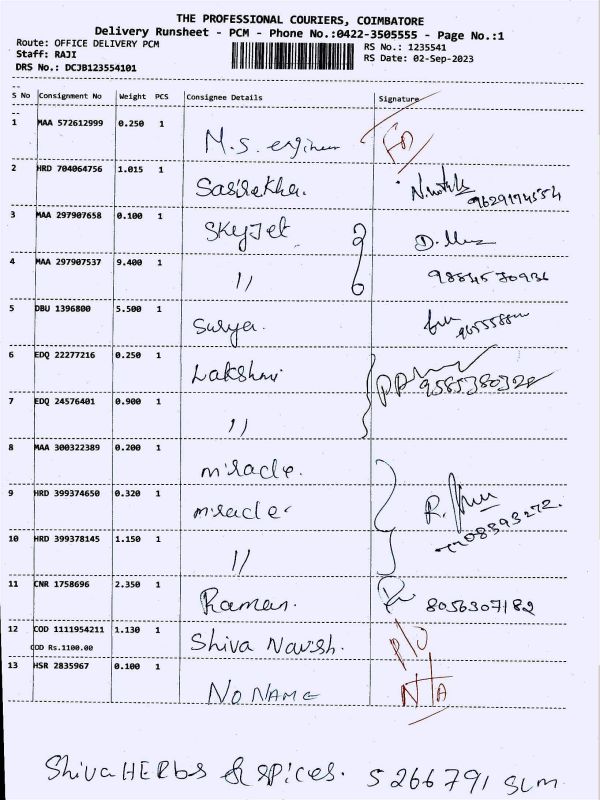 THE PROFESSIONAL COURIERS, COIMBATORE
Delivery Runsheet - PCM - Phone No.:0422-3505555 - Page No.:1
Route: OFFICE DELIVERY PCM
Staff: RAJI
DRS No.: DCJB123554101
RS No.: 1235541
RS Date: 02-Sep-2023
S No Consignment No Weight PCS Consignee Details Signature
1 MAA 572612999 0.250 1 M.S. engineer
2 HRD 704064756 1.015 1 Sasirekha.
3 MAA 297907658 0.100 1 SkyJet
4 MAA 297907537 9.400 1 11
5 DBU 1396800 5.500 1 Surya.
6 EDQ 22277216 0.250 1 Lakshmi
7 EDQ 24576401 0.900 1 11
8 MAA 300322389 0.200 1 miracle.
9 HRD 399374650 0.320 1 miracle.
10 HRD 399378145 1.150 1 11
11 CNR 1758696 2.350 1 Raman. 8056307182
12 COD 1111954211 1.130 1 Shiva Naresh.
COD Rs.1100.00
13 HSR 2835967 0.100 1 NO NAME N/A
Shiva HERbs & spices. 5266791 SLM